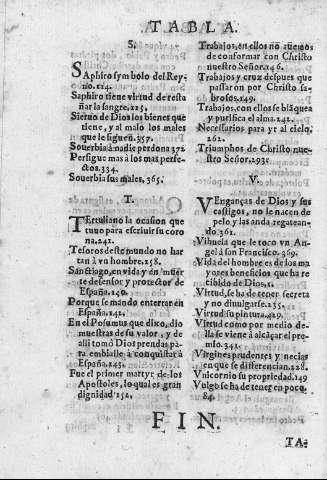 TABLA.
S.
SAphiro symbolo del Rey-
no. 114.
Saphiro tiene virtud de resta
ñar la sangre. 225.
Sieruo de Dios los bienes que
tiene, y al malo los males
que le siguen. 357.
Souerbia à nadie perdona 372
Persigue mas à los mas perfe-
ctos. 334.
Souerbia sus males, 365.
T.
TErtuliano la ocasion que
tuuo para escriuir su coro
na. 241.
Tesoros deste mundo no har
tan à vn hombre. 258.
Santiago, en vida y en muer
te defensor y protector de
España. 140.
Porque se mando enterrar en
España. 141.
En el Posumus que dixo, dio
muestras de su valor, y de
alli tomò Dios prendas pa-
ra embialle à conquistar à
España. 143.
Fue el primer martyr de los
Apostoles, lo qual es gran
dignidad 152.
Trabajos, en ellos nos auemos
de conformar con Christo
nuestro Señor. 146.
Trabajos y cruz despues que
passaron por Christo sa-
brosos. 149.
Trabajos, con ellos se blãquea
y purifica el alma. 241.
Necessarios para yr al cielo.
262.
Triumphos de Christo nue-
stro Señor. 293.
V.
VEnganças de Dios y sus
castigos, no le nacen de
pelo y las anda regatean-
do. 361.
Vihuela que le toco vn An-
gel à san Francisco. 369.
Vida del hombre es de los ma
yores beneficios que ha re
cibido de Dios. 1.
Virtud, se ha de tener secreta
y no diuulgarse. 255.
Virtud su pintura. 429.
Virtud como por medio de-
lla se viene à alcãçar el pre-
mio. 341.
Virgines prudentes y necias
en que se differencian. 228.
Vnicornio su propiedad. 149
Vulgo se ha de tener en poco.
84.
FIN.
TA-